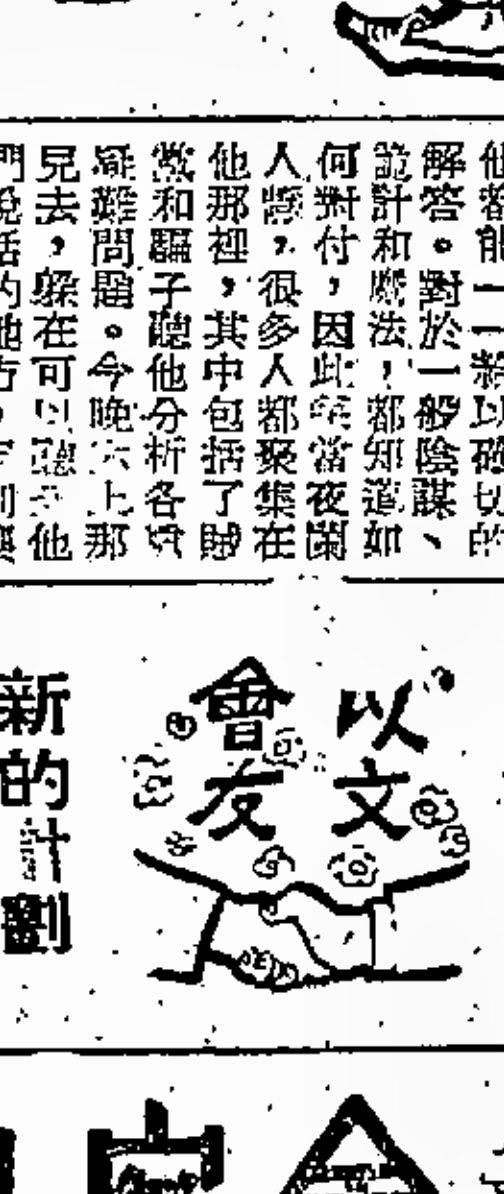 他都能一一給以確切的
解答。對於一般陰謀、
詭計和魔法,都知道如
何對付,因此當夜闌
人靜,很多人都聚集在
他那裡,其中包括了賊
和騙子聽他分析各項
疑難問題。今晚上那
兒去,躲在可以聽到他
們說話的地方,
以文
會友
新的計劃